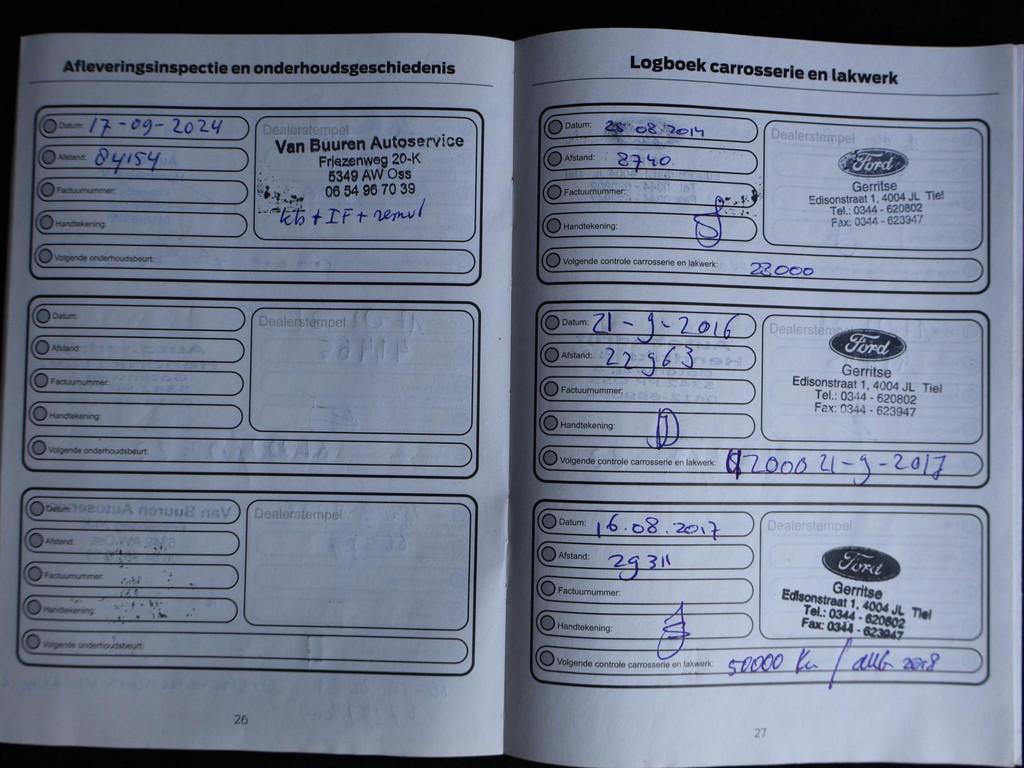 Afleveringsinspectie en onderhoudsgeschiedenis
Datum: 17-09-2024
Afstand: 84154
Factuurnummer:
Handtekening:
Volgende onderhoudsbeurt:
Dealerstempel
Van Buuren Autoservice
Friezenweg 20-K
5349 AW Oss
06 54 96 70 39
Datum:
Afstand:
Factuurnummer:
Handtekening:
Volgende onderhoudsbeurt:
Dealerstempel
Datum:
Afstand:
Factuurnummer:
Handtekening:
Volgende onderhoudsbeurt:
Dealerstempel
26
Logboek carrosserie en lakwerk
Datum: 28 08.2014
Afstand: 8740
Factuurnummer:
Handtekening:
Volgende controle carrosserie en lakwerk: 23000
Dealerstempel
Ford
Gerritse
Edisonstraat 1, 4004 JL Tiel
Tel.: 0344 - 620802
Fax: 0344 - 623947
Datum: 21-9-2016
Afstand: 22963
Factuurnummer:
Handtekening:
Volgende controle carrosserie en lakwerk: 21-9-2017
Dealerstempel
Ford
Gerritse
Edisonstraat 1, 4004 JL Tiel
Tel.: 0344 - 620802
Fax: 0344 - 623947
Datum: 16.08.2017
Afstand: 29311
Factuurnummer:
Handtekening:
Volgende controle carrosserie en lakwerk: 50000 Km / 2018
Dealerstempel
Ford
Gerritse
Edisonstraat 1, 4004 JL Tiel
Tel.: 0344 - 620802
Fax: 0344 - 623947
27